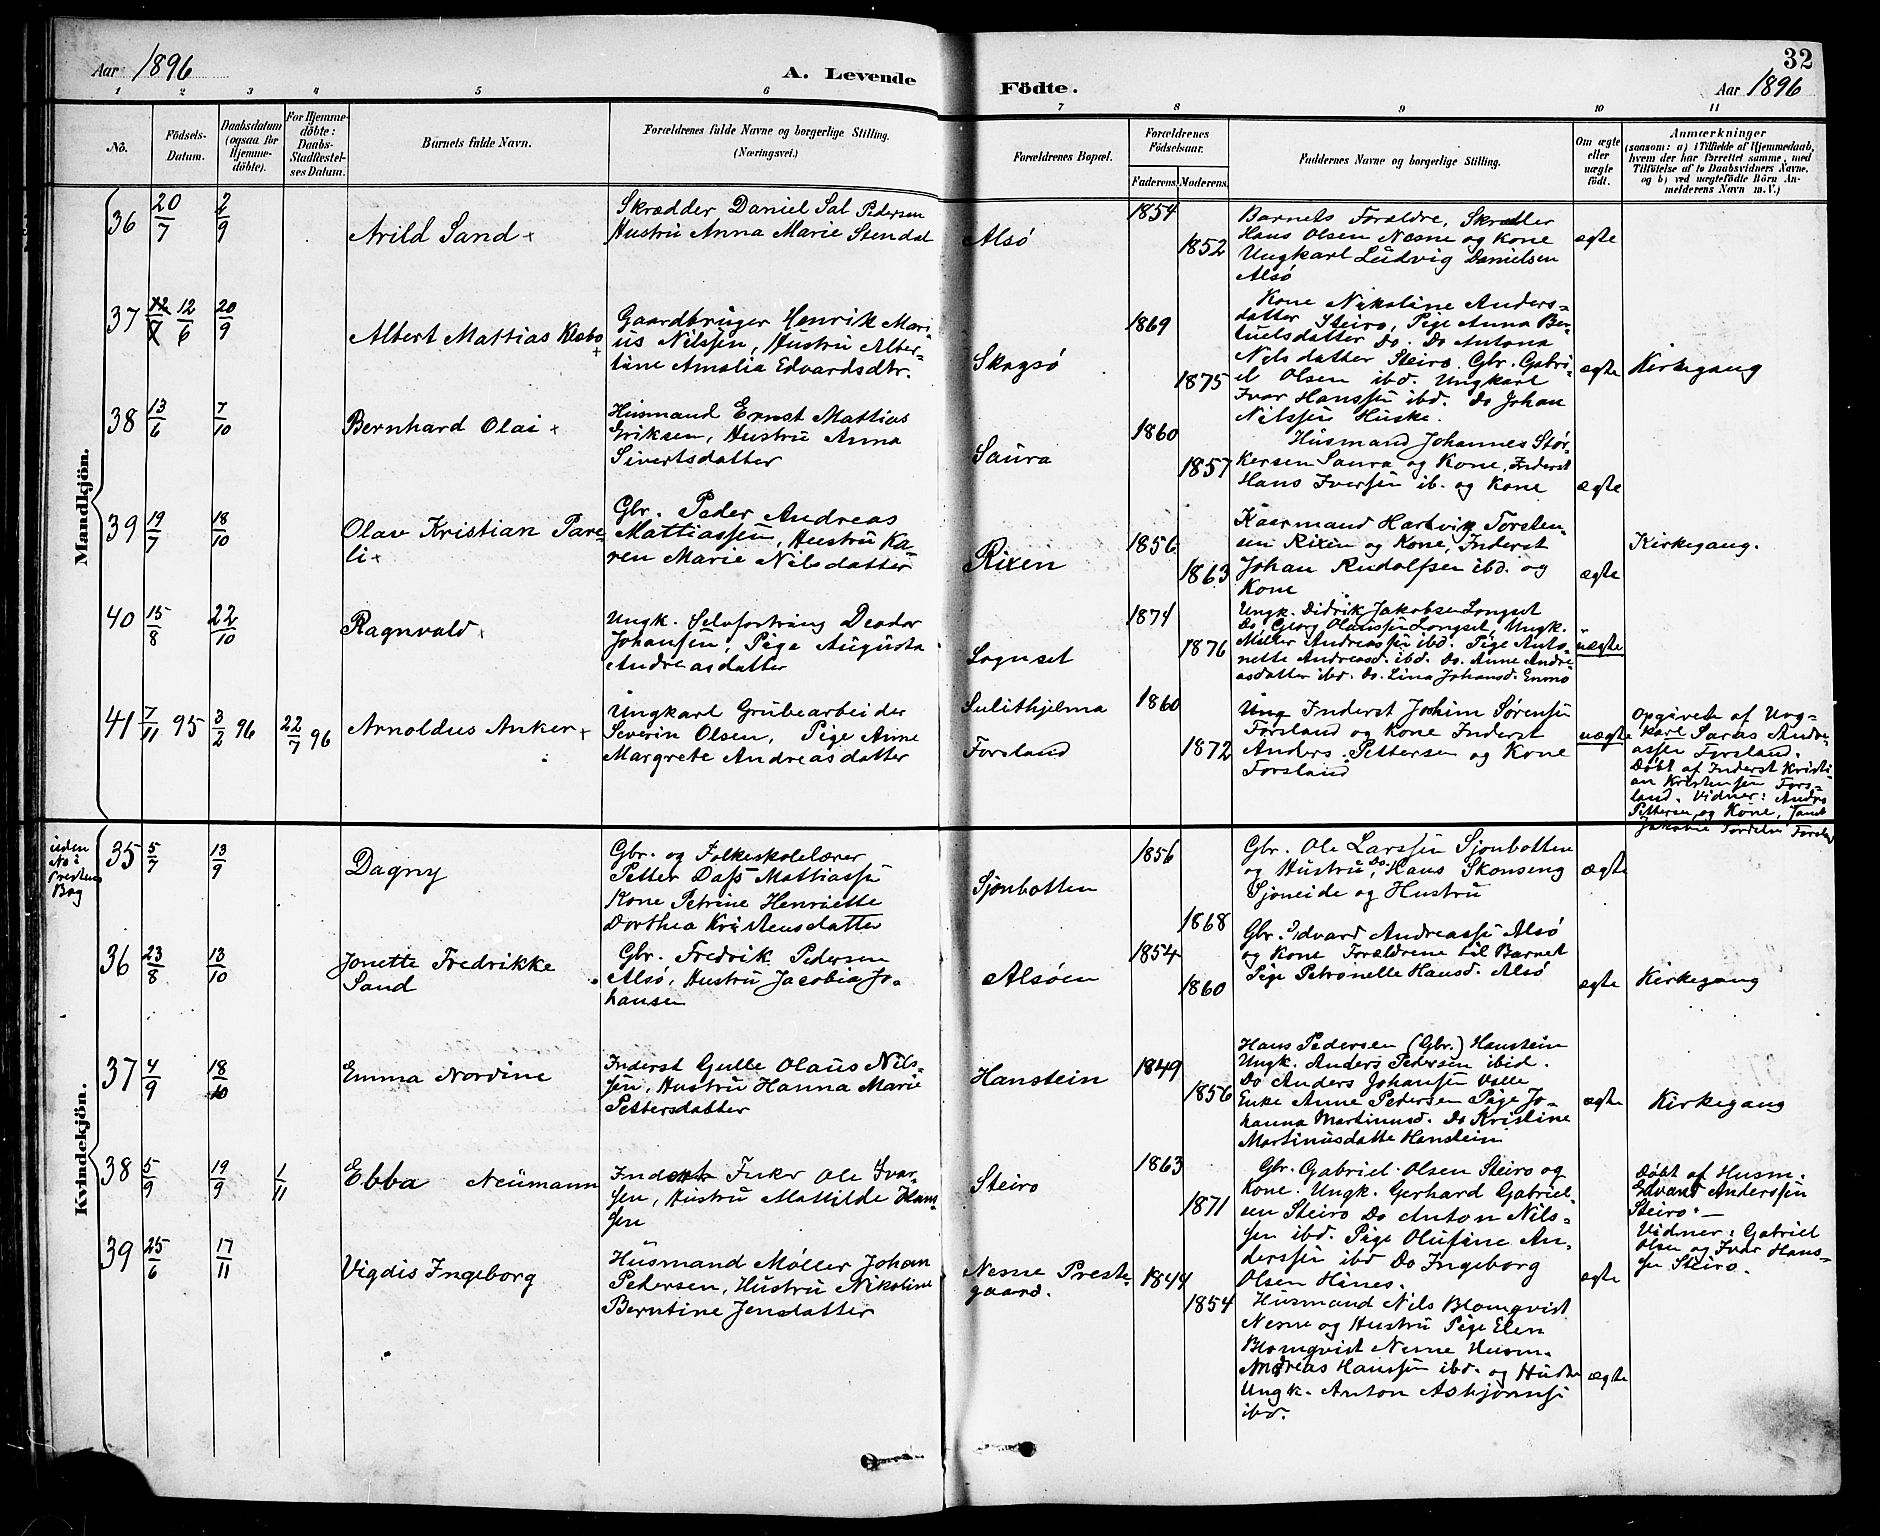 Aar 1896
A. Levende
Födte.
32
Aar 1896
1 2 3 4 5 6 7 8 9 10 11
No.
Födsels-
Datum.
Daabsdatum
(ogsaa for
Hjemme-
döbte).
For Hjemme-
döbte:
Daabs-
Stadfæstel-
ses Datum.
Barnets fulde Navn.
Forældrenes fulde Navne og borgerlige Stilling.
(Næringsvei.)
Forældrenes Bopæl.
Forældrenes
Födselsaar.
Faderens. Moderens.
Faddernes Navne og borgerlige Stilling.
Om ægte
eller
uægte
födt.
Anmærkninger
(saasom: a) i Tilfælde af Hjemmedaab,
hvem der har forrettet samme, med
Tilföielse af to Daabsvidners Navne,
og b) ved uægtefödte Börn An-
melderens Navn m. V.)
Mandkjön.
36 20/7 2/9
Arild Sand
Skrædder Daniel Sal Pedersen
Hustru Anna Marie Stendal
Alsö
1854
1852
Barnets Forældre, Skrædder
Hans Olsen Nesne og Kone
Ungkarl Ludvig Danielsen
Alsö
ægte
37 12/6 20/9
Albert Mattias Klæbo
Gaardbruger Henrik Mari-
us Nilssen, Hustru Alber-
tine Amalia Edvardsdtr.
Skogsö
1869
1875
Kone Nikoline Anders-
datter Steiro, Pige Anna Be-
tuelsdatter Do. Do Antona
Nilsdatter Steiro. Gbr. Gabri-
el Olsen ibd. Ungkarl
Ivar Hanssen ibd. Do Johan
Nilssen Huske.
ægte
Kirkegang
38 13/6 7/10
Bernhard Olai
Husmand Ernst Mattias
Eriksen, Hustru Anna
Sivertsdatter
Saura
1860
1857
Husmand Johannes Stör-
kersen Saura og Kone, Inderst
Hans Iversen ib. og Kone
ægte
39 19/7 18/10
Olav Kristian Pare-
li
Gbr. Peder Andreas
Mattiassen, Hustru Ka-
ren Marie Nilsdatter
Rixen
1856
1863
Kaarmand Hartvig Torsten-
sen Rixen og Kone, Inderst
Johan Rudolfsen ibd. og
Kone
ægte
Kirkegang.
40 15/8 22/10
Ragnvald
Ungk. Selvfortring Deodor
Johansen, Pige Augusta
Andreasdatter
Lognset
1874
1876
Ungk. Didrik Jakobsen Longset
Do, Georg Olaussen Longset, Ungk.
Möller Andreassen ibd. Pige Anto-
nette Andreasd. ibd. Do. Anne Andre-
asdatter ibd. Do. Lina Johansd. Enmo
uægte
41 7/11 95 3/2 96 22/7 96
Arnoldus Anker
Ungkarl Grubearbeider
Severin Olsen, Pige Anne
Margrete Andreasdatter
Sulithjelma
Forsland
1860
1872
Ung Inderst Jochim Sørensen
Forsland og Kone Inderst
Anders Pettersen og Kone
Forsland
uægte
Opgivet af Ung-
karl Saras Andre-
assen Forsland.
Döbt af Inderst Kristi-
an Kristensen Fors-
land. Vidner: Andrs
Pettersen og Kone, samt
Jakobie Tordelsn Forsland
Kvindekjön.
uden
No i
Prestens
Bog
35 5/7 13/9
Dagny
Gbr. og Folkeskolelærer
Petter Dass Mattiassen
Kone Petrine Henriette
Dorthea Kristensdatter
Sjonbotten
1856
1868
Gbr. Ole Larssen Sjonbotten
og Hustru, Do. Hans Skonseng
Sjoneide og Hustru
ægte
36 23/8 13/10
Jonette Fredrikke
Sand
Gbr. Fredrik Pedersen
Alsö, Hustru Jacobia Jo-
hansen
Alsöen
1854
1860
Gbr. Edvard Andreassen Alsö
og Kone Forældrene til Barnet
Pige Petronelle Hansd. Alsö
ægte
Kirkegang
37 4/9 18/10
Emma Nordine
Inderst Gulle Olaus Nils-
sen, Hustru Hanna Marie
Pettersdatter
Hanstein
1849
1856
Hans Pedersen (Gbr.) Hanstein
Ungk. Anders Pedersen ibid.
Do Anders Johansen Valle
Enke Anne Pedersen Pige Jo-
hanna Martinusd. Do Kristine
Martinusdatte Hanstein
ægte
Kirkegang
38 5/9 19/9 1/11
Ebba Neumann
Inderst Ole Ivar-
sen, Hustru Mathilde Han-
sen
Steiro
1863
1871
Gbr. Gabriel Olsen Steiro og
Kone. Ungk. Gerhard Gabriel-
sen Steiro Do Anton Nils-
sen ibd. Pige Olufine An-
derssen ibd Do Ingeborg
Olsen Hines.
ægte
Döbt af Husm.
Edvard Anderssen
Steiro. —
Vidner: Gabriel
Olsen og Ivar Hans-
sen Steiro.
39 25/6 17/11
Vigdis Ingeborg
Husmand Møller Johan
Pedersen, Hustru Nikoline
Berntine Jensdatter
Nesne Preste-
gaard.
1844
1854
Husmand Nils Blomqvist
Nesne og Hustru Pige Elen
Blomqvist Nesne Husm.
Andreas Hanssen ibd. og Hustru
Ungk. Anton Asbjørnsen
ibd.
ægte